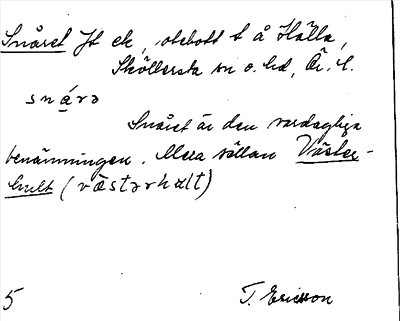 Snåret Jt ek, obebott t å Hälla,
Sköllersta sn o. hd, Ör. l.
snárə
Snåret är den vardagliga
benämningen. Mera sällan Väster-
hult (västərhult)
5 T. Ericsson